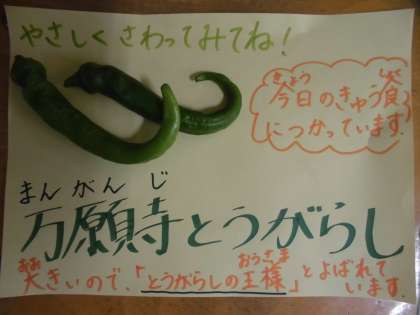 やさしくさわってみてね!
きょう しょく
今日のきゅう食
につかっています。
まんがんじ
万願寺とうがらし
おお おうさま
大きいので、「とうがらしの王様」とよばれて
います。